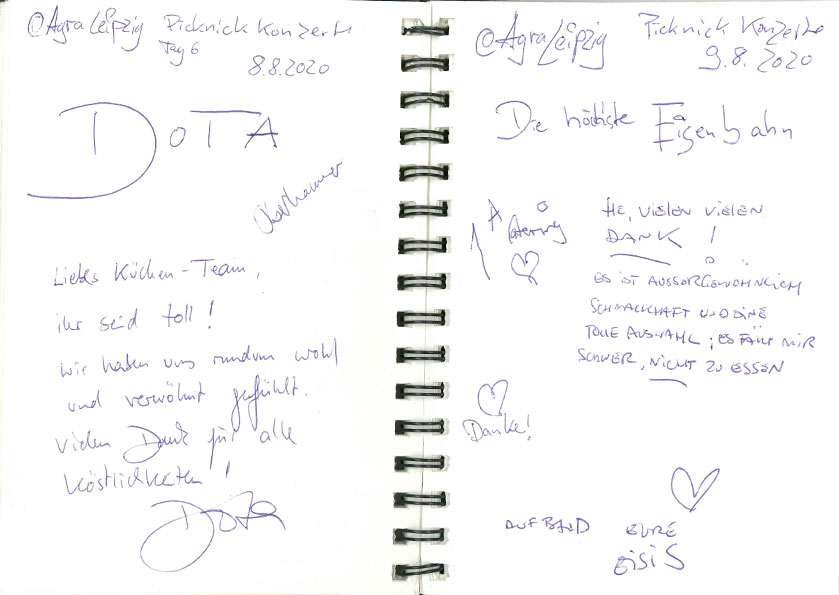 @Agra Leipzig Picknick Konzerte
Tag 6
8.8.2020
DOTA
Liebes Küchen-Team,
ihr seid toll!
wir haben uns rundum wohl
und verwöhnt gefühlt.
Vielen Dank für alle
Köstlichkeiten!
Dota
@Agra Leipzig Picknick Konzerte
9.8.2020
Die höchste Eisenbahn
1A Catering
HE, VIELEN VIELEN
DANK!
ES IST AUSSERGEWÖHNLICH
SCHMACKHAFT UND EINE
TOLLE AUSWAHL; ES FÄLLT MIR
SCHWER, NICHT ZU ESSEN
Danke!
AUF BALD EURE
EISIS